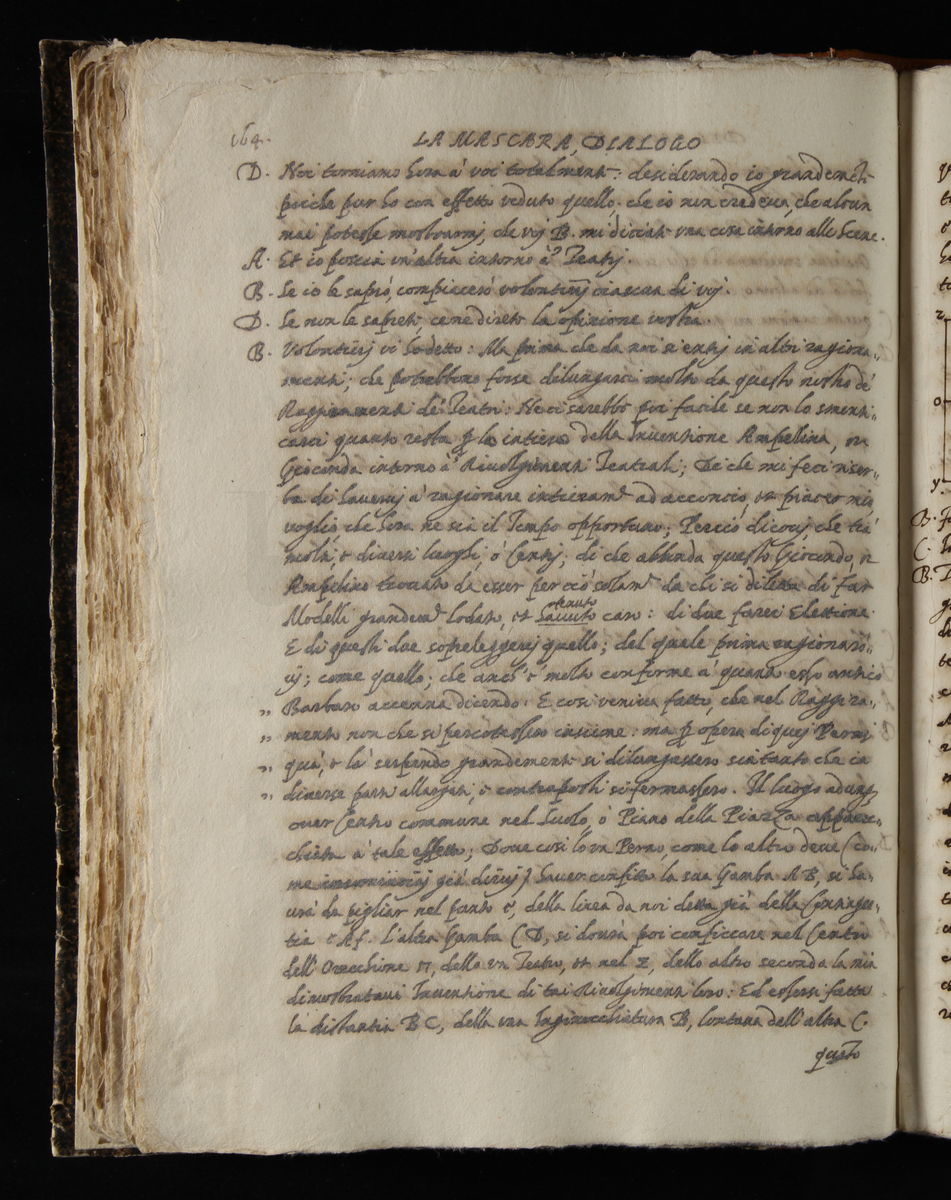 164.
LA MASCARA, DIALOGO
D. Noi torniamo hora à voi totalmente: desiderando io grandemente
poiche pur ho con effetto veduto quello, che io non credeva, che alcun
mai potesse mostrarmj, che voj B. mi diciate una cosa intorno alle Scene.
A. Et io poscia un'altra intorno à Teatrj.
B. Se io le saprò, compiacerò volontierj ciascun di voj.
D. Se non le saprete cene direte la opinione vostra.
B. Volontierj vi ho detto: Ma prima che da noi si entrj in altri ragiona„
menti; che potrebbono forse dilungarci molto da questo nostro de'
Raggiramenti de' Teatri: Ne ci sarebbe poi facile se non lo smenti„
carci quanto resta per lo intiero della Inventione Ampelina, ou
Gioconda intorno à Rivolgimenti Teatrali; De che mi feci riser„
ba di haveruj à ragionare intieramte ad acconcio, et piacer mio,
voglio, che hora ne sia il Tempo opportuno; Perciò dicouj, che tra
molti, e diversi luoghi, ò Centrj; di che abbonda questo Giocondo, ou
Ampelino trovato da esser per ciò solamte da chi si diletta di far
Modelli grandemte lodato, et tenuto caro: di due farei Elettione.
E di questi due sopreleggerej quello; del quale prima ragionarò„
uj; come quello; che anch'è molto conforme a' quanto esso antico
„ Barbaro accenna dicendo. E cosi veniva fatto, che nel Raggira„
„ mento non che si percotessero insieme: ma per opera di quej Pernj
„ quà, e là serpendo grandemente si dilungassero sin tanto che in
„ diverse parti allargati, e contraposti si fermassero. Il luogo adunque
over Centro commune nel Suolo, ò Piano della Piazza apparec„
chiata à tale effetto; Doue cosi lo un Perno, come lo altro deve (co„
me già dissj) haver confitto la sua Gamba AB, si ha„
urà da pigliar nel punto e, della linea da noi detta già della Contingen„
tia eAf. L'altra Gamba CD, si dourà poi conficcare nel Centro
dell'Orecchione n, dello un Teatro, et nel z, dello altro secondo la mia
dimostrataui Inventione di tai Rivolgimenti loro: Ed essersi fatta
la distantia BC, della una Inginocchiatura B, lontana dell'altra C.
questo